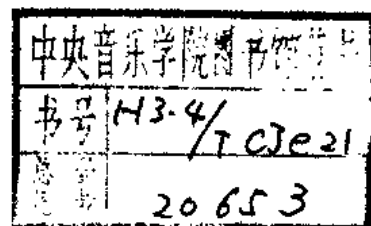 中央音乐学院图书馆藏书
书号 H3.4/TCJe21
总号 20653